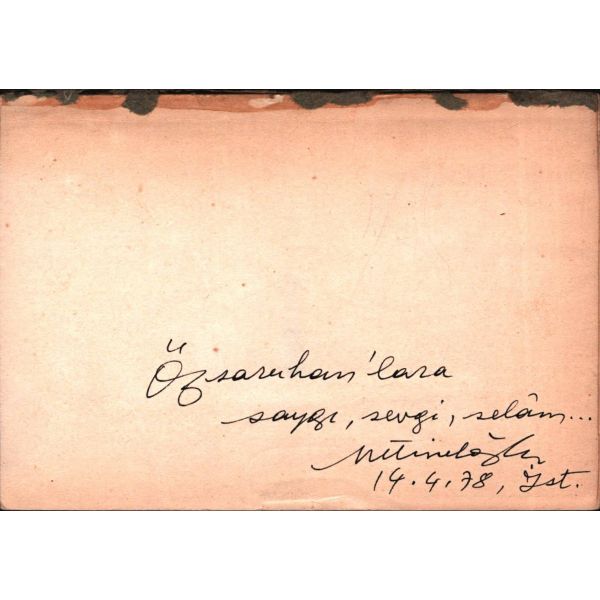 Özsaruhan'lara
saygı, sevgi, selâm...
14.4.78, İst.